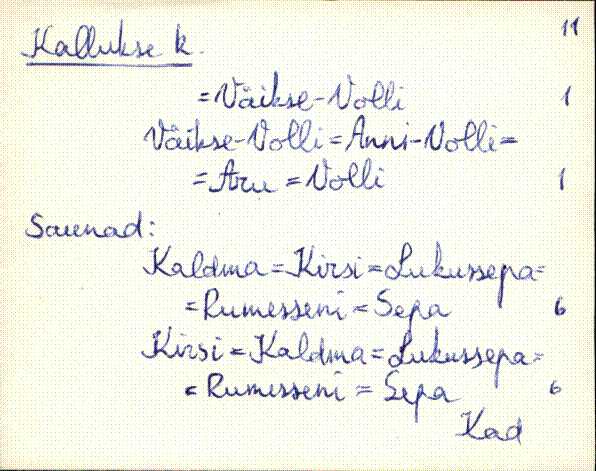 11
Kallukse k.
= Väikse-Volli 1
Väikse-Volli = Anni-Volli =
= Aru = Volli 1
Saunad:
Kaldma = Kirsi = Lukussepa =
= Rumesseni = Sepa 6
Kirsi = Kaldma = Lukussepa =
= Rumesseni = Sepa 6
Kad